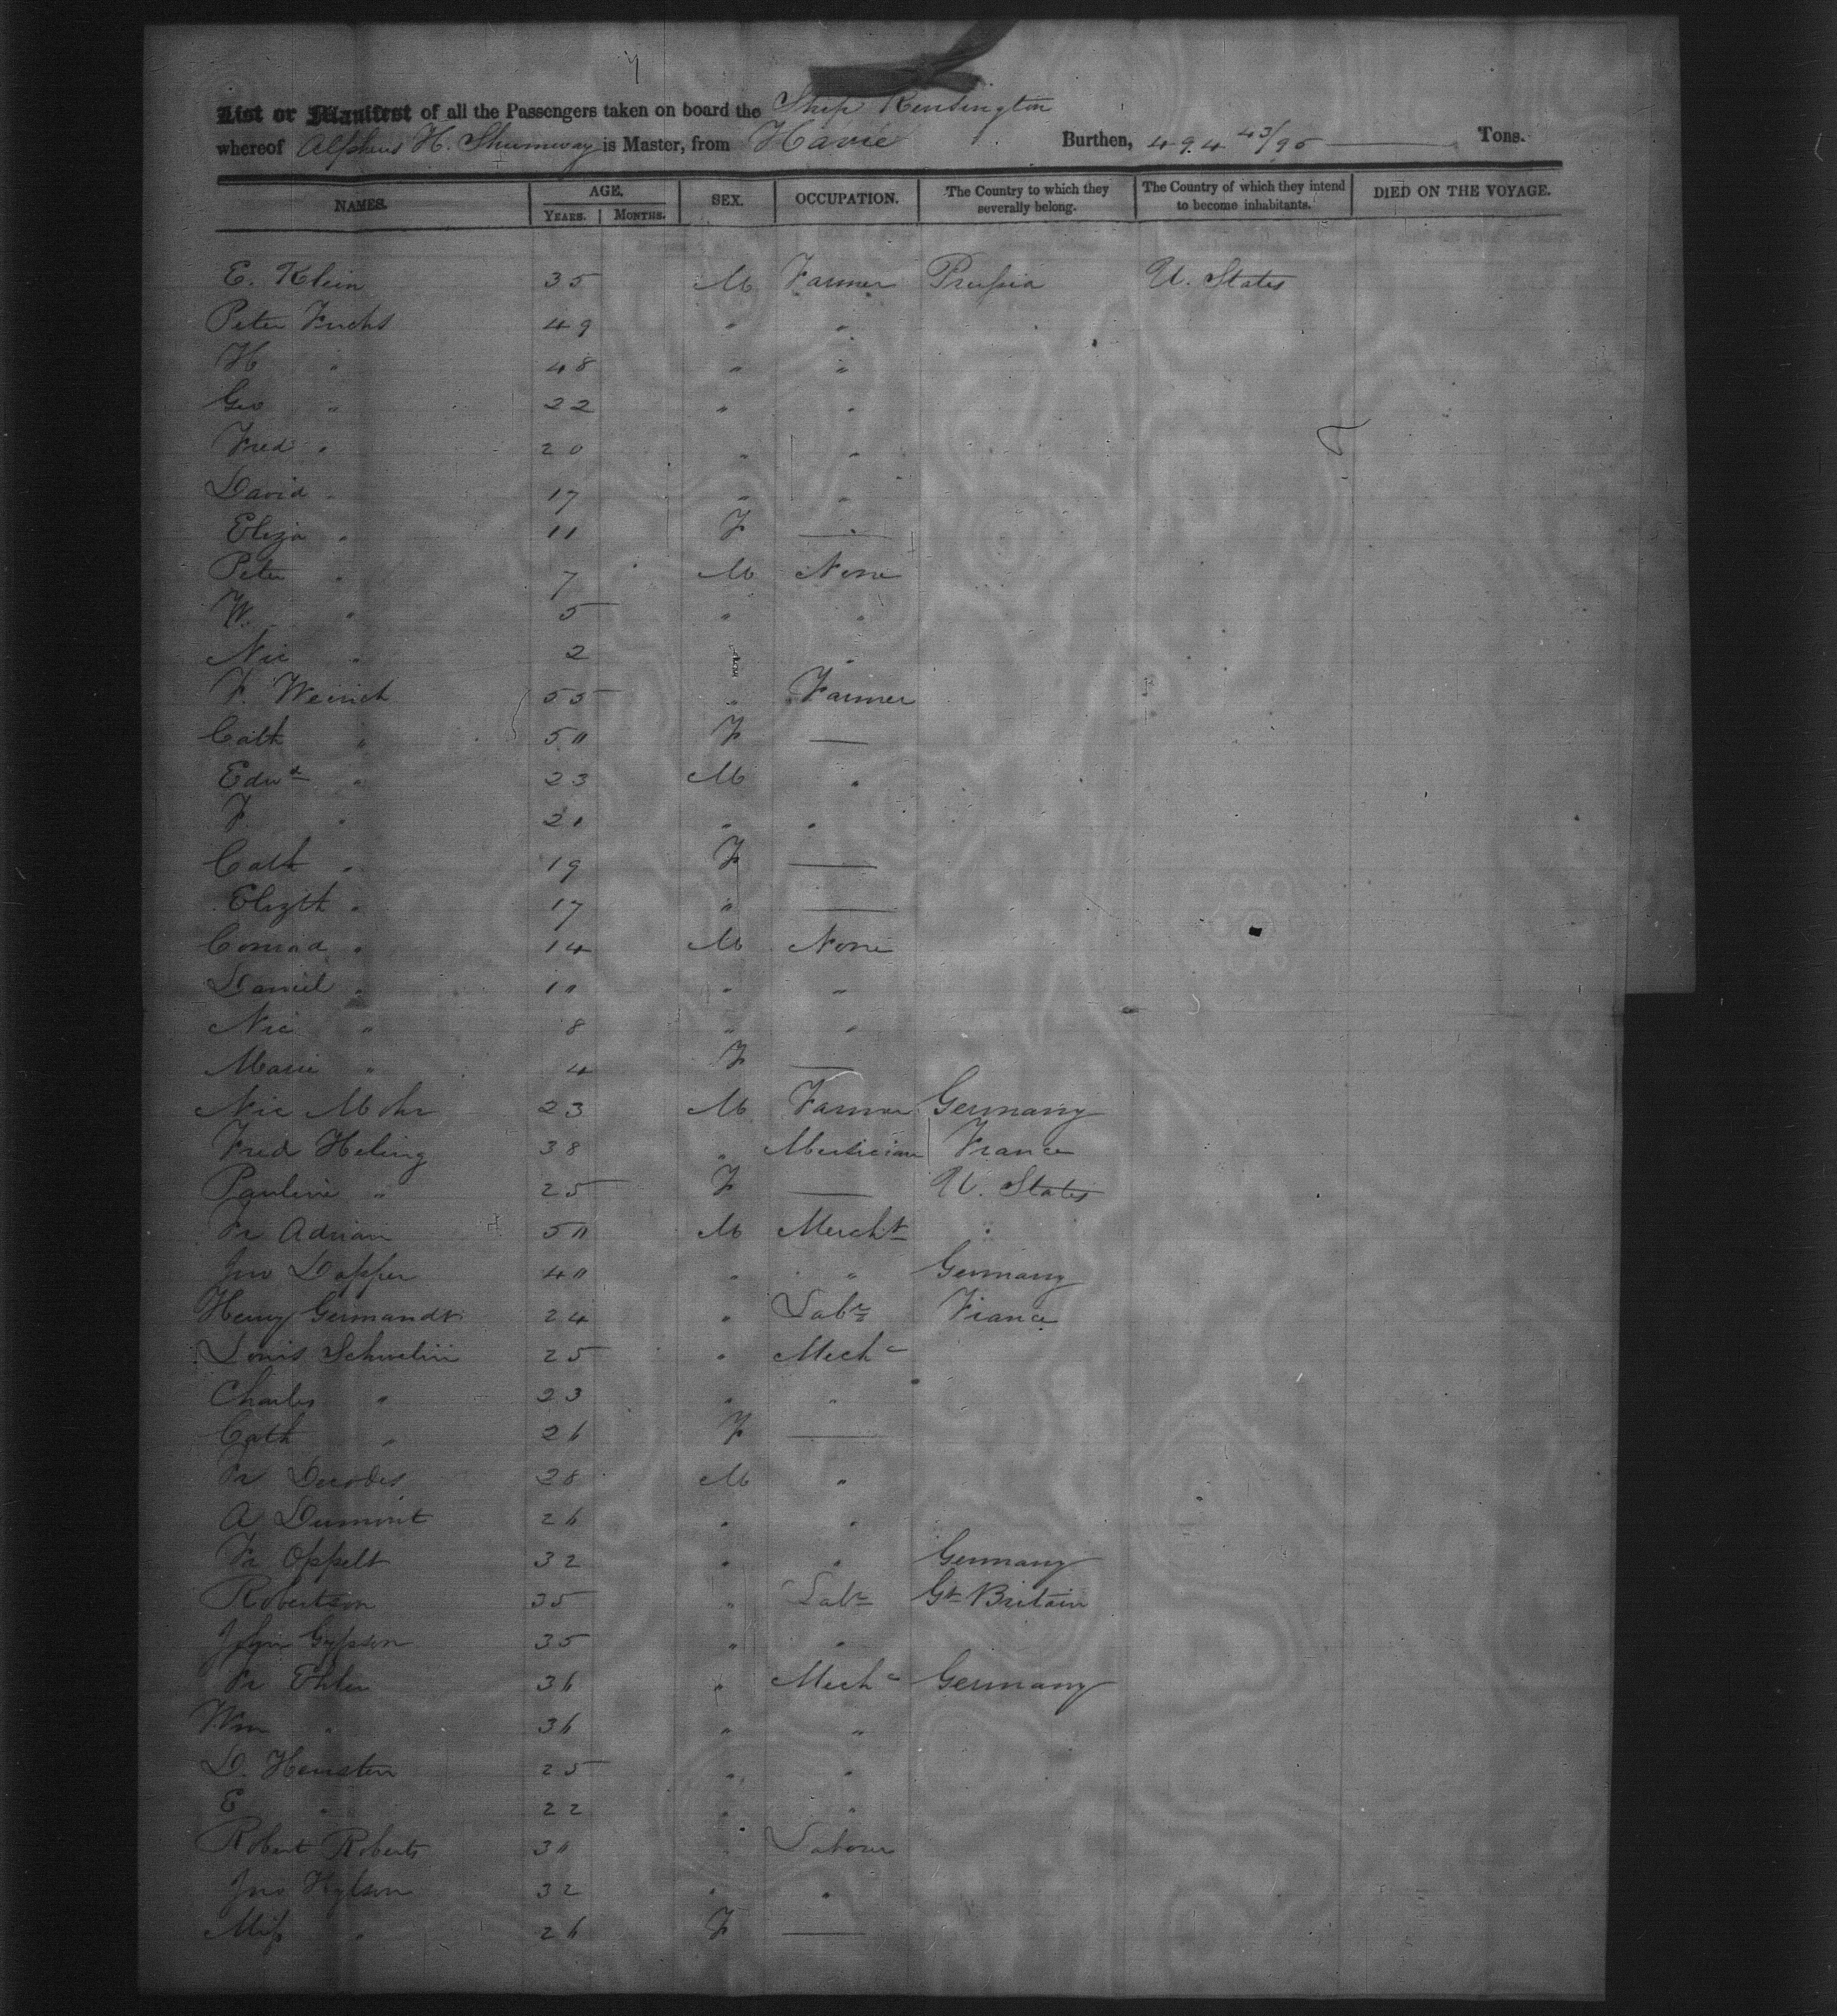 List or Manifest of all the Passengers taken on board the Ship Kensington
whereof Alpheus H. Shumway is Master, from Havre Burthen, 494 43/95 Tons.
NAMES. AGE. SEX. OCCUPATION. The Country to which they severally belong. The Country of which they intend to become inhabitants. DIED ON THE VOYAGE.
YEARS. MONTHS.
E. Klein 35 M Farmer Prussia U. States
Peter Fuchs 49 " "
H " 48 " "
Geo " 22 " "
Fred " 20 " "
David " 17 " "
Eliza " 11 F —
Peter " 7 M None
W. " 5 " "
Nic " 2 " "
F. Weirich 55 " Farmer
Cath " 50 F —
Edwd " 23 M "
F " 21 " "
Cath " 19 F —
Elizth " 17 " —
Conrad " 14 M None
Daniel " 10 " "
Nic " 8 " "
Marie " 4 F —
Nic Mohr 23 M Farmer Germany
Fred Heling 38 " Musician France
Pauline " 25 F — U. States
Fr Adrian 50 M Mercht "
Jno Dapper 40 " " Germany
Henry Germandt 24 " Labr France
Louis 25 " Mechc
Charles " 23 " "
Cath " 26 F —
Fr 28 M "
A Dumont 26 " "
Fr Oppelt 32 " " Germany
Robertson 35 " Labr Gt Britain
John Gypson 35 " "
Fr Ehlen 36 " Mechc Germany
Wm " 36 " "
D. 25 " "
E " 22 " "
Robert Roberts 30 " Labour
Jno 32 " "
Miss " 26 F —